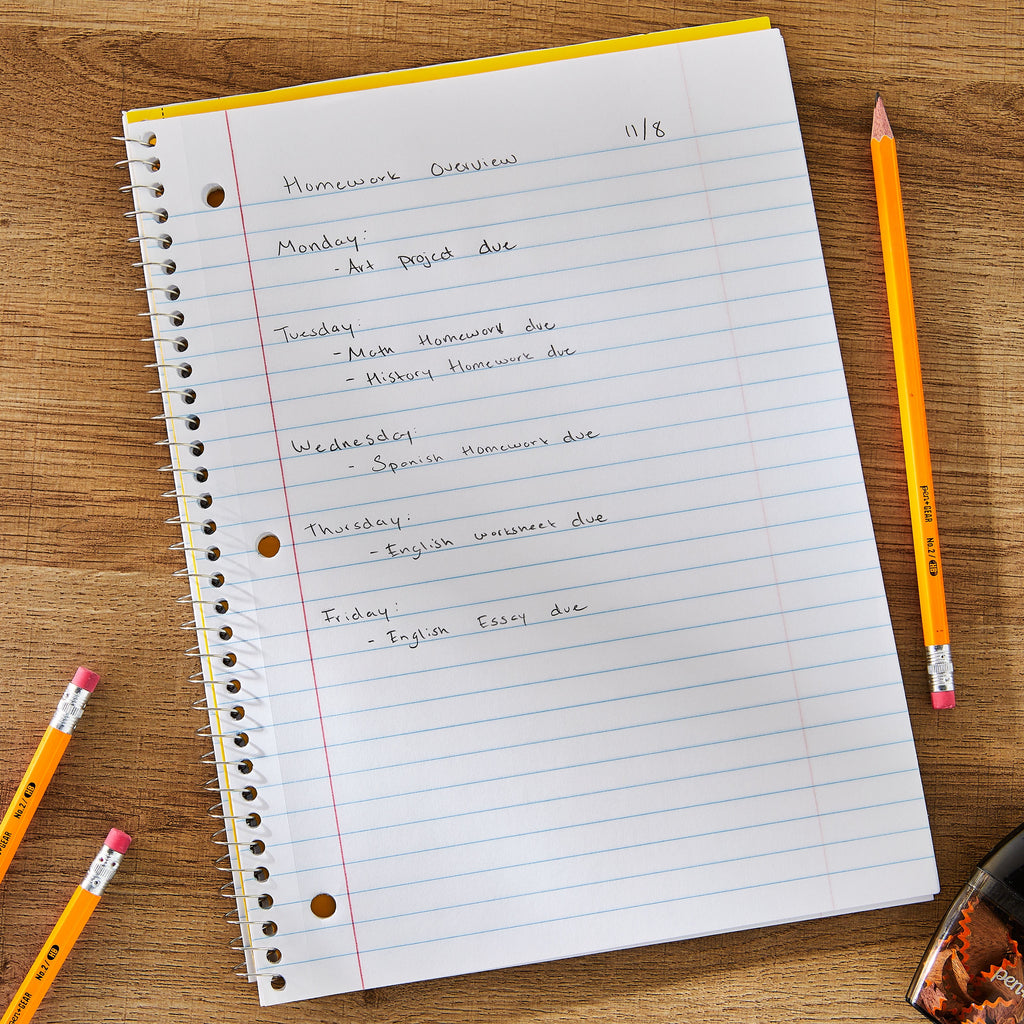 11/8
Homework Overview
Monday:
- Art project due
Tuesday:
- Math Homework due
- History Homework due
Wednesday:
- Spanish Homework due
Thursday:
- English worksheet due
Friday:
- English Essay due
pen+GEAR No.2/HB
No.2/HB
pen+GEAR No.2/HB
pen+